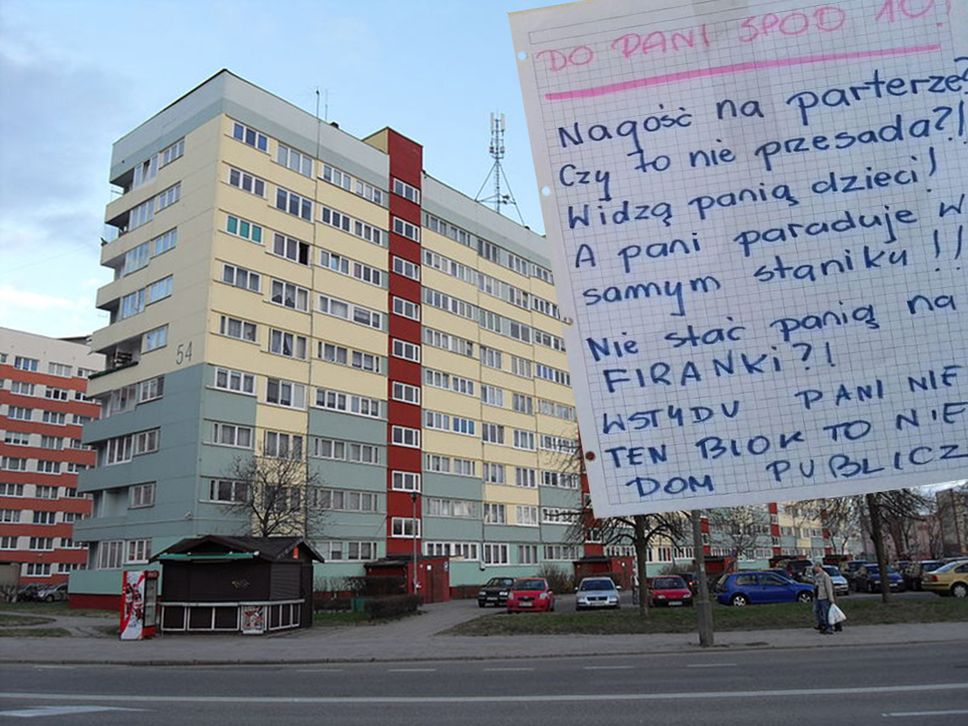 DO PANI SPOD 10!
Nagość na parterze?
Czy to nie przesada?!
Widzą panią dzieci!
A pani paraduje w
samym staniku!!
Nie stać panią na
FIRANKI?!
WSTYDU PANI NIE
TEN BLOK TO NIE
DOM PUBLICZ
54